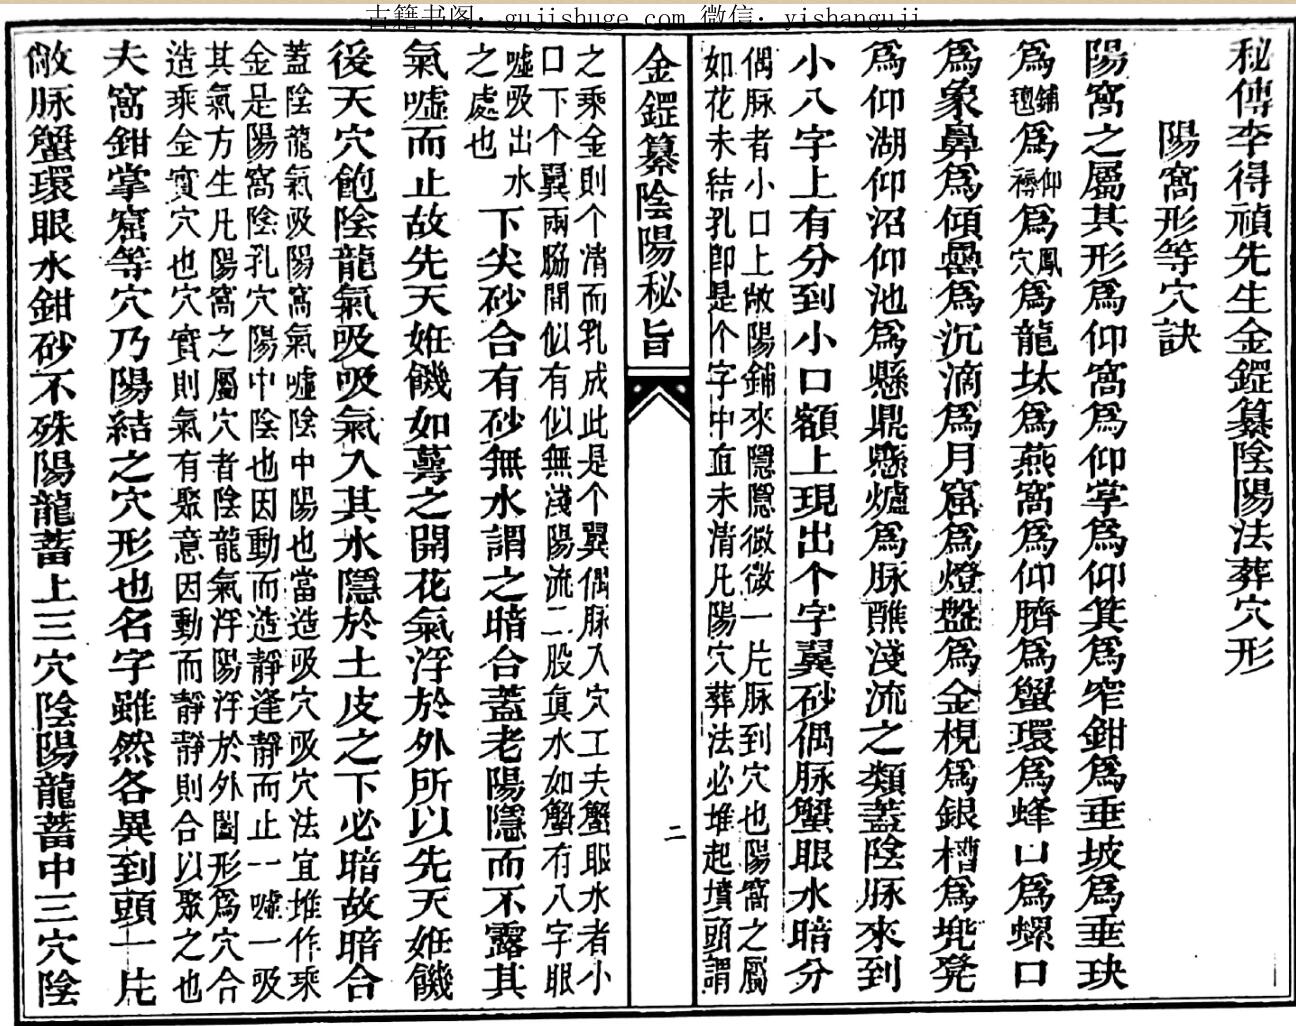 古籍书阁：gujishuge.com 微信：yishanguji
秘傳李得禎先生金鎠纂陰陽法葬穴形
陽窩形等穴訣
陽窩之屬其形爲仰窩爲仰掌爲仰箕爲窄鉗爲垂坡爲垂玦
爲鋪毬爲仰褥爲鳳穴爲龍㳀爲燕窩爲仰臍爲蟹環爲蜂口爲螺口
爲象鼻爲傾罍爲沉滴爲月窟爲燈盤爲金梘爲銀槽爲兠凳
爲仰湖仰沼仰池爲懸鼎懸爐爲脉醮淺流之類蓋陰脉來到
小八字上有分到小口額上現出个字翼砂偶脉蟹眼水暗分
偶脉者小口上敞陽鋪來隱隱微微一片脉到穴也陽窩之屬
如花未結乳卽是个字中直未清凡陽穴葬法必堆起墳頭謂
金鎠纂陰陽秘旨
二
之乘金則个清而乳成此是个翼偶脉入穴工夫蟹眼水者小
口下个翼兩脇間似有似無淺陽流二股眞水如蟹有八字眼
噓吸出水
之處也
下尖砂合有砂無水謂之暗合蓋老陽隱而不露其
氣噓而止故先天姙饑如蕚之開花氣浮於外所以先天姙饑
後天穴飽陰龍氣吸吸氣入其水隱於土皮之下必暗故暗合
蓋陰龍氣吸陽窩氣噓陰中陽也當造吸穴吸穴法宜堆作乘
金是陽窩陰乳穴陽中陰也因動而造靜逢靜而止一噓一吸
其氣方生凡陽窩之屬穴者陰龍氣浮陽浮於外闔形爲穴合
造乘金實穴也穴實則氣有聚意因動而靜靜則合以聚之也
夫窩鉗掌窟等穴乃陽結之穴形也名字雖然各異到頭一片
敞脉蟹環眼水鉗砂不殊陽龍蓄上三穴陰陽龍蓄中三穴陰